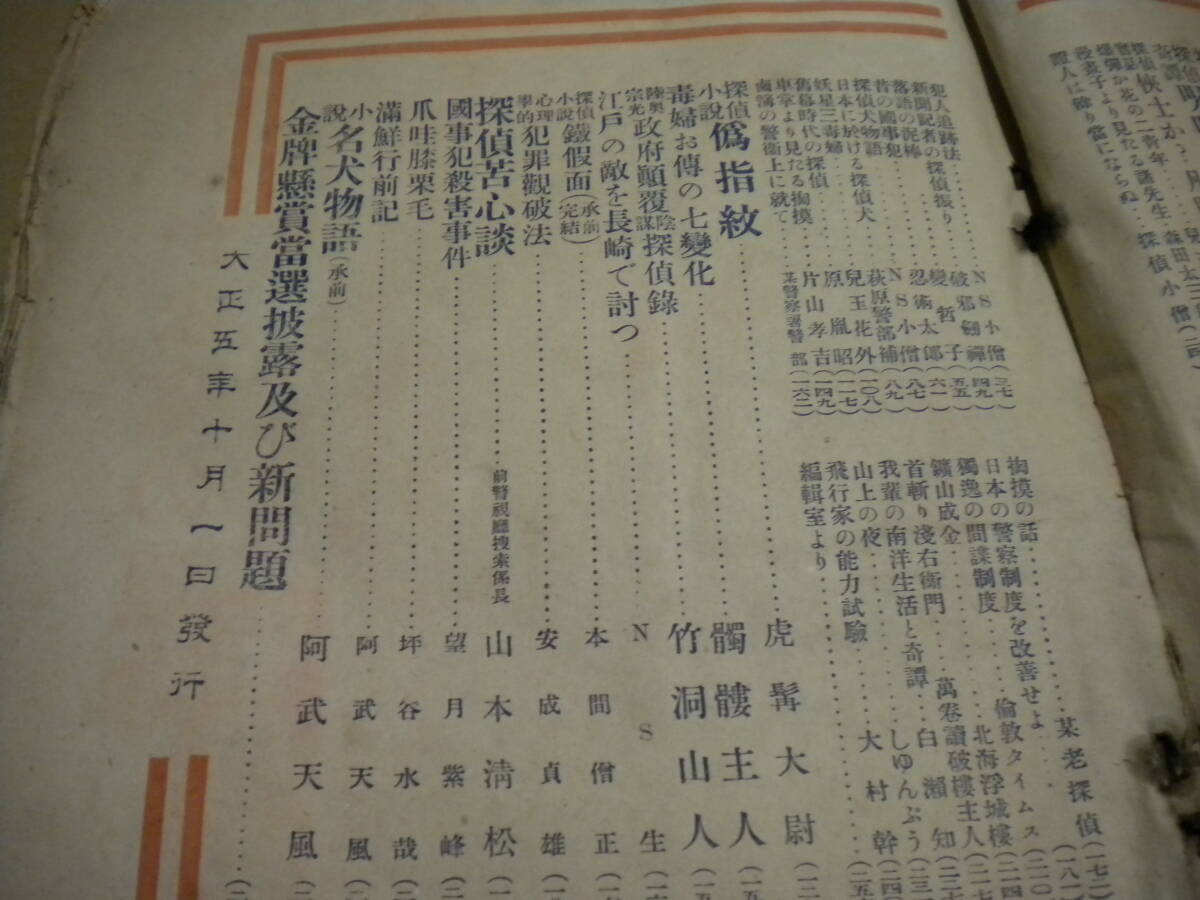 犯人追跡法……NS小僧(三七)
新聞記者の探偵振り……破邪劍禪(四九)
落語の泥棒……變哲子(五五)
昔の國事犯……忍術太郎(六一)
探偵犬物語……NS小僧(八七)
日本に於ける探偵犬……萩原警部補(八九)
妖星三毒婦……兒玉花外(一〇八)
舊幕時代の探偵……原胤昭(一一七)
車掌より見たる掏摸……片山孝吉(一四九)
鹵簿の警衛上に就て……某警察署警部(一六二)
探偵小說 僞指紋……虎髯大尉
毒婦お傳の七變化……髑髏主人
陸奥宗光 政府顚覆陰謀探偵錄……竹洞山人
江戸の敵を長崎で討つ……NS生
探偵小說 鐵假面(承前)(完結)……本間僧正
心理學的 犯罪觀破法……安成貞雄
探偵苦心談……前警視廳捜索係長 山本淸松
國事犯殺害事件……望月紫峰
爪哇膝栗毛……坪谷水哉
滿鮮行前記……阿武天風
小說 名犬物語(承前)……阿武天風
金牌懸賞當選披露及び新問題……
掏摸の話……某老探偵(一七二)
日本の警察制度を改善せよ……倫敦タイムス
獨逸の間諜制度……北海浮城樓
鑛山成金……萬卷讀破樓主人
首斬り淺右衛門……白瀬知
我輩の南洋生活と奇譚……しゆんぷう
山上の夜……大村幹
飛行家の能力試驗……
編輯室より……
大正五年十月一日發行